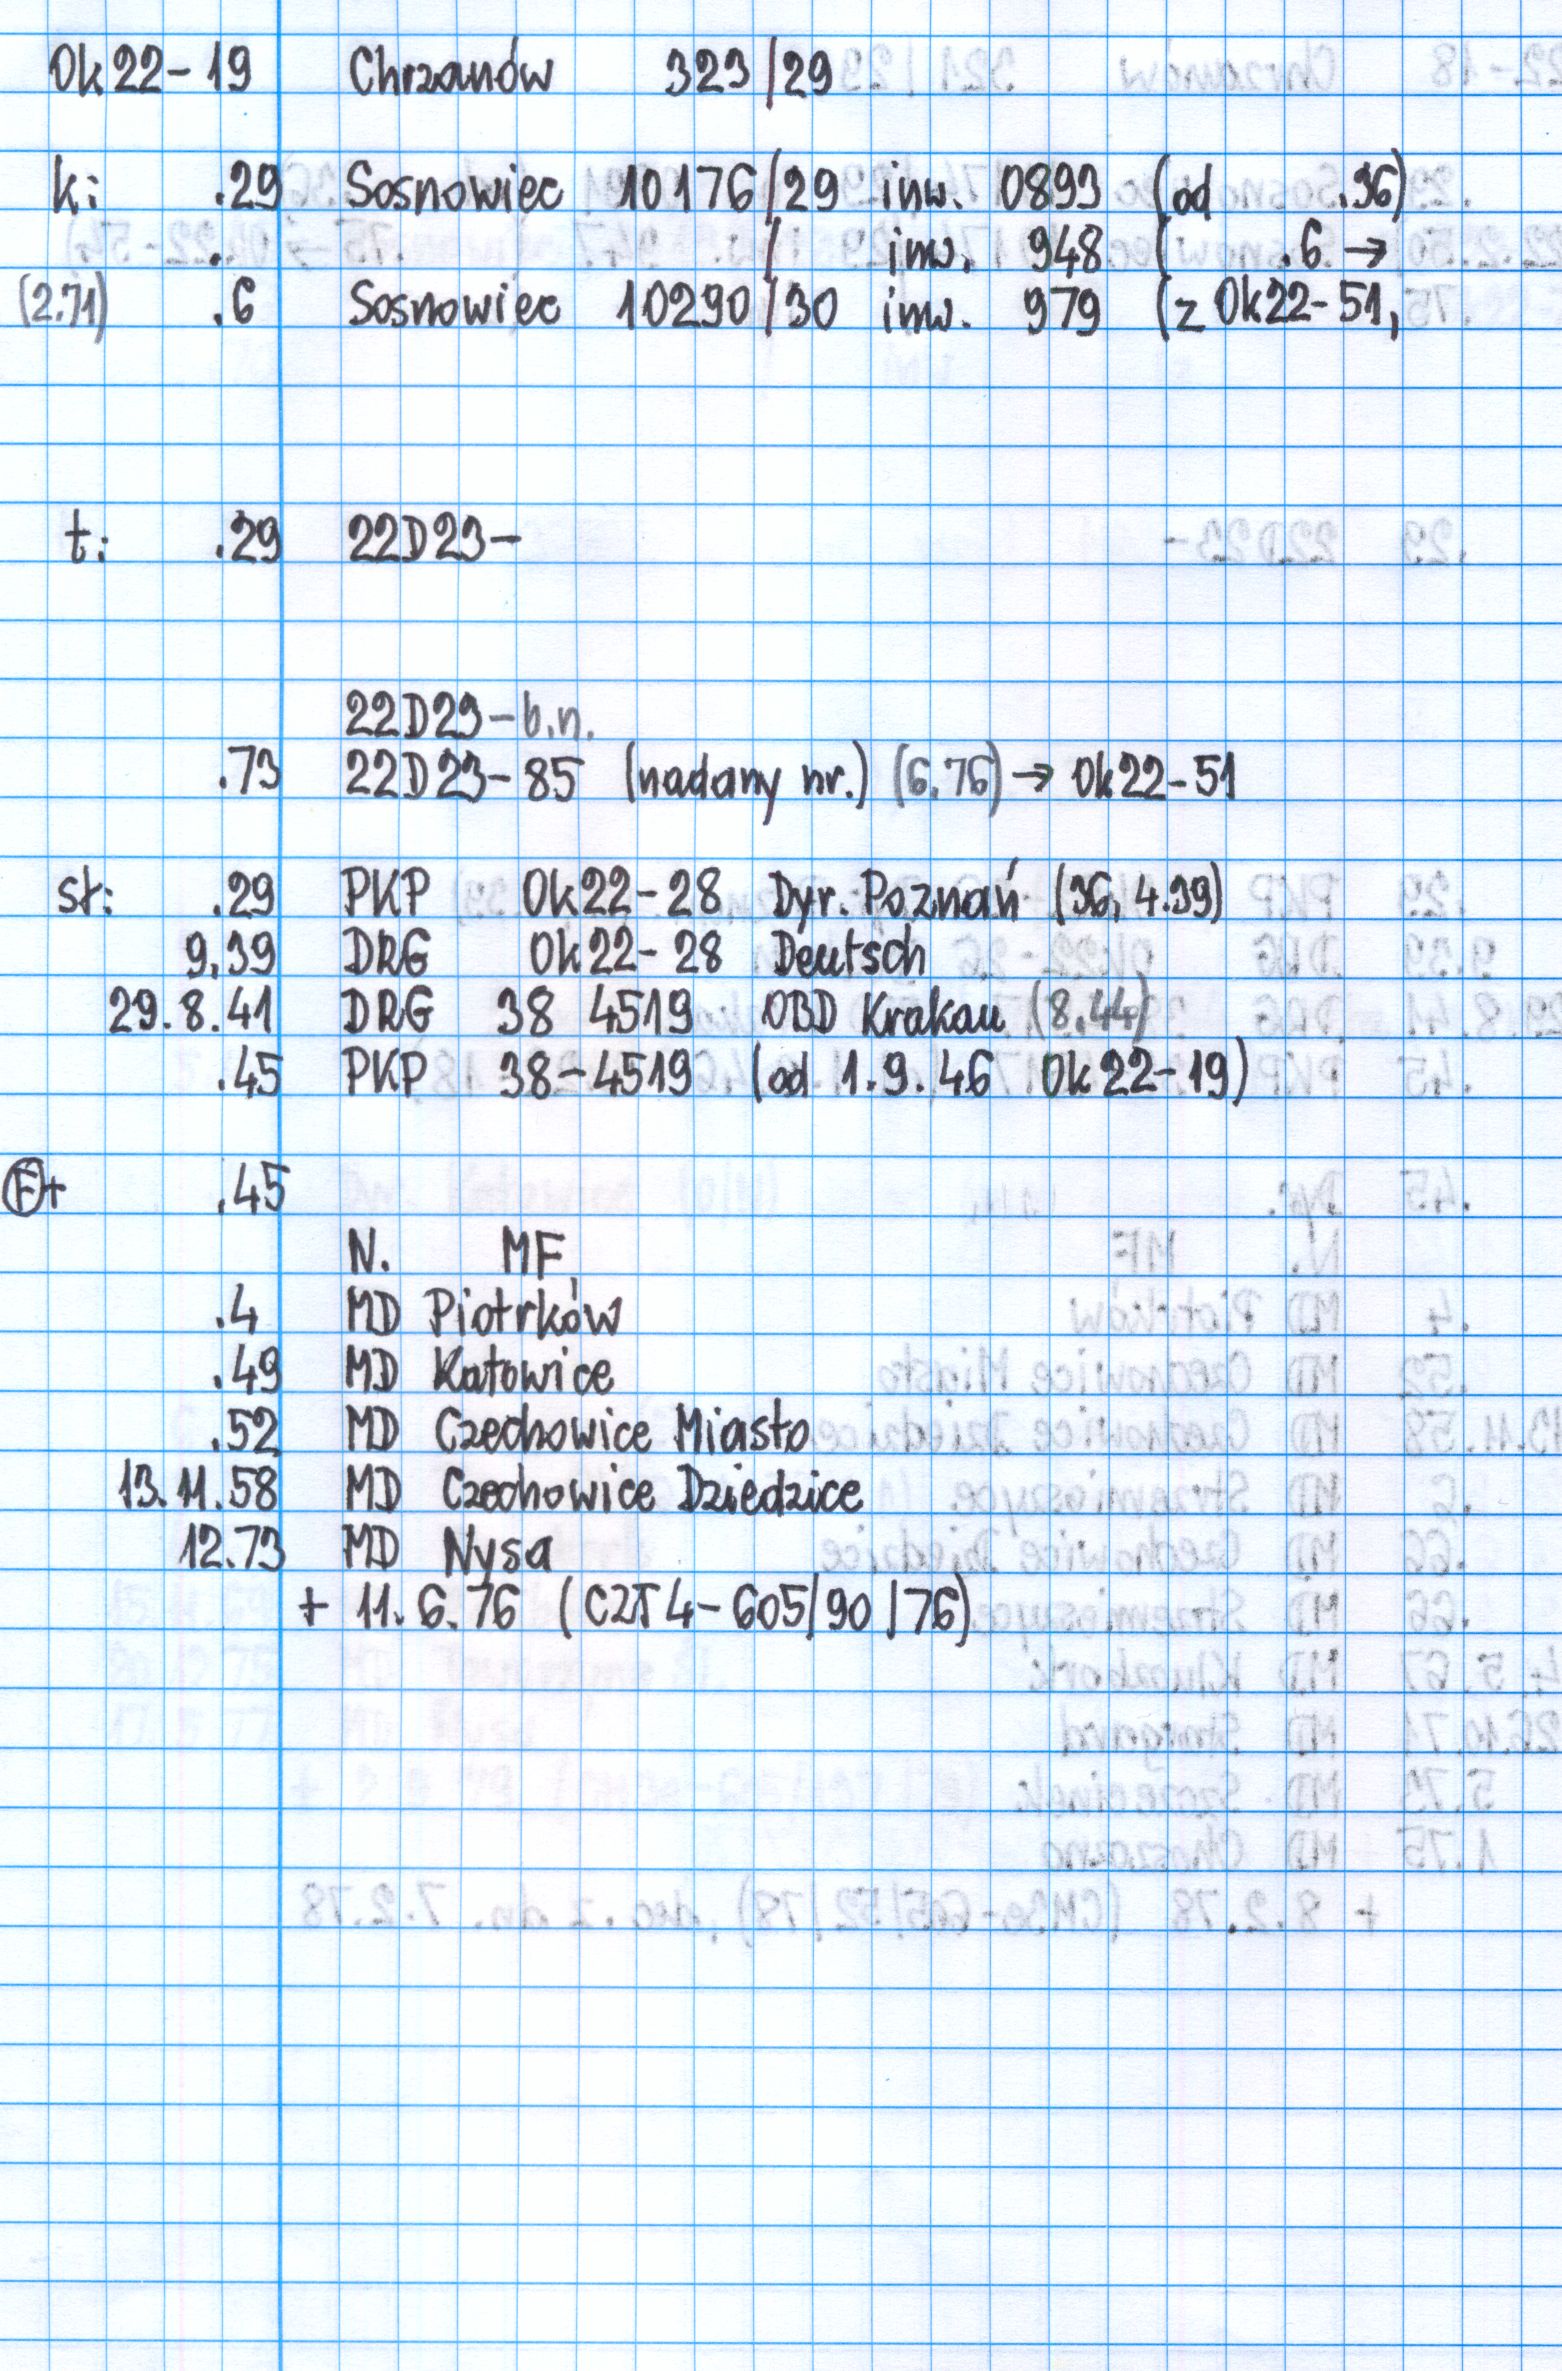 Ok22-19 Chrzanów 323/29
k: .29 Sosnowiec 10176/29 inw. 0893 (od .36)
. / inw. 948 ( .6 →
(2.71) .6 Sosnowiec 10290/30 inw. 979 (z Ok22-51,
t: .29 22D23-
22D23-b.n.
.73 22D23-85 (nadany nr.) (6.76) → Ok22-51
sł: .29 PKP Ok22-28 Dyr. Poznań (36, 4.39)
9.39 DRG Ok22-28 Deutsch
29.8.41 DRG 38 4519 OBD Krakau (8.44)
.45 PKP 38-4519 (od 1.9.46 Ok22-19)
Ⓕ+ .45
N. MF
.4 MD Piotrków
.49 MD Katowice
.52 MD Czechowice Miasto
13.11.58 MD Czechowice Dziedzice
12.73 MD Nysa
+ 11.6.76 (CZT4-605/90/76)